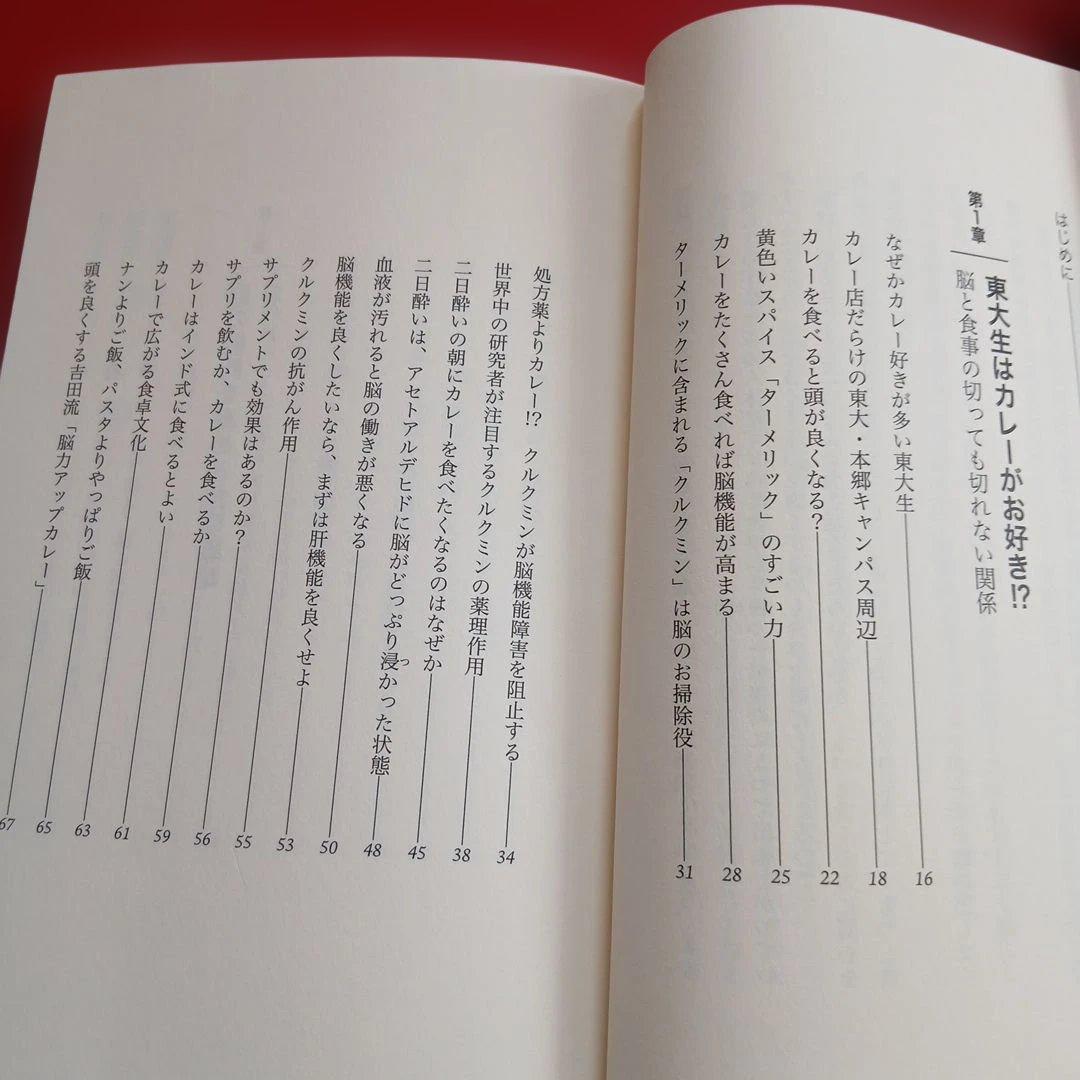 はじめに
第1章
東大生はカレーがお好き!?
脳と食事の切っても切れない関係
なぜかカレー好きが多い東大生 16
カレー店だらけの東大・本郷キャンパス周辺 18
カレーを食べると頭が良くなる? 22
黄色いスパイス「ターメリック」のすごい力 25
カレーをたくさん食べれば脳機能が高まる 28
ターメリックに含まれる「クルクミン」は脳のお掃除役 31
処方薬よりカレー!? クルクミンが脳機能障害を阻止する 34
世界中の研究者が注目するクルクミンの薬理作用 38
二日酔いの朝にカレーを食べたくなるのはなぜか 45
二日酔いは、アセトアルデヒドに脳がどっぷり浸かった状態 48
血液が汚れると脳の働きが悪くなる 50
脳機能を良くしたいなら、まずは肝機能を良くせよ 53
クルクミンの抗がん作用 55
サプリメントでも効果はあるのか? 56
サプリを飲むか、カレーを食べるか 59
カレーはインド式に食べるとよい 61
カレーで広がる食卓文化 63
ナンよりご飯、パスタよりやっぱりご飯 65
頭を良くする吉田流「脳力アップカレー」 67